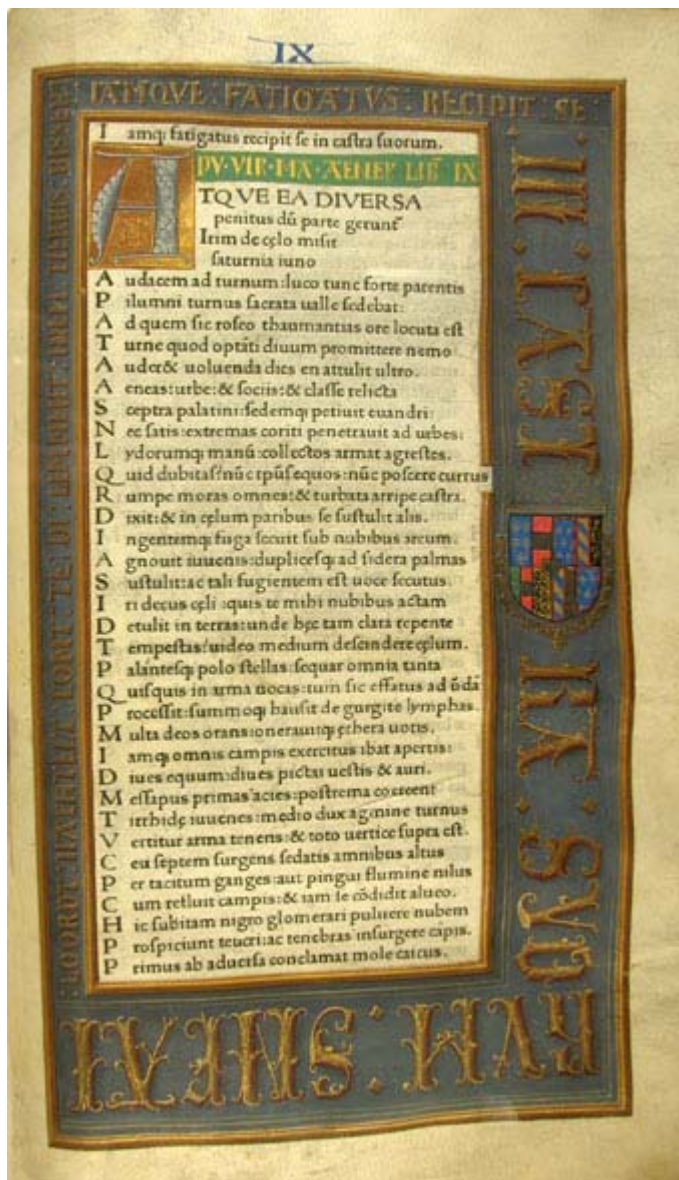 IX
IAMQVE : FATIGATVS : RECIPIT : SE :
I amq; fatigatus recipit se in castra suorum.
PV · VIR · MA · AENEP LIB̃ IX
ATQVE EA DIVERSA
penitus dũ parte gerunt̃
Irim de cęlo misit
saturnia iuno
A udacem ad turnum: luco tunc forte parentis
P ilumni turnus sacrata ualle sedebat:
A d quem sic roseo thaumantias ore locuta est
T urne quod optãti diuum promittere nemo
A uder& uoluenda dies en attulit ultro.
A eneas: urbe: & sociis: & classe relicta
S ceptra palatini: sedemq; petiuit euandri:
N ec satis: extremas coriti penetrauit ad urbes:
L ydorumq; manũ: collectos armat agrestes.
Q uid dubitas? nũc tp̃us equos: nũc poscere currus
R umpe moras omnes: & turbata arripe castra.
D ixit: & in cęlum paribus se sustulit alis.
I ngentemq; fuga secuit sub nubibus arcum.
A gnouit iuuenis: duplicesq; ad sidera palmas
S ustulit: ac tali fugientem est uoce secutus.
I ri decus cęli: quis te mihi nubibus actam
D etulit in terras: unde hęc tam clara repente
T empestas? uideo medium descindere cęlum.
P alantesq; polo stellas: sequar omnia tanta
Q uisquis in arma uocas: tum sic effatus ad ũdã
P rocessit: summoq; hausit de gurgite lymphas.
M ulta deos orans: onerauitq; ęthera uotis.
I amq; omnis campis exercitus ibat apertis:
D iues equum: diues pictai uestis & auri.
M essapus primas acies: postrema coercent
T irrhidę iuuenes: medio dux agmine turnus
V ertitur arma tenens: & toto uertice supra est.
C eu septem surgens sedatis amnibus altus
P er tacitum ganges: aut pingui flumine nilus
C um refluit campis: & iam se cõdidit alueo.
H ic subitam nigro glomerari puluere nubem
P rospiciunt teucri: ac tenebras insurgere cãpis.
P rimus ab aduersa conclamat mole caicus.
· IN · CAST
RA · SVO
RVM :